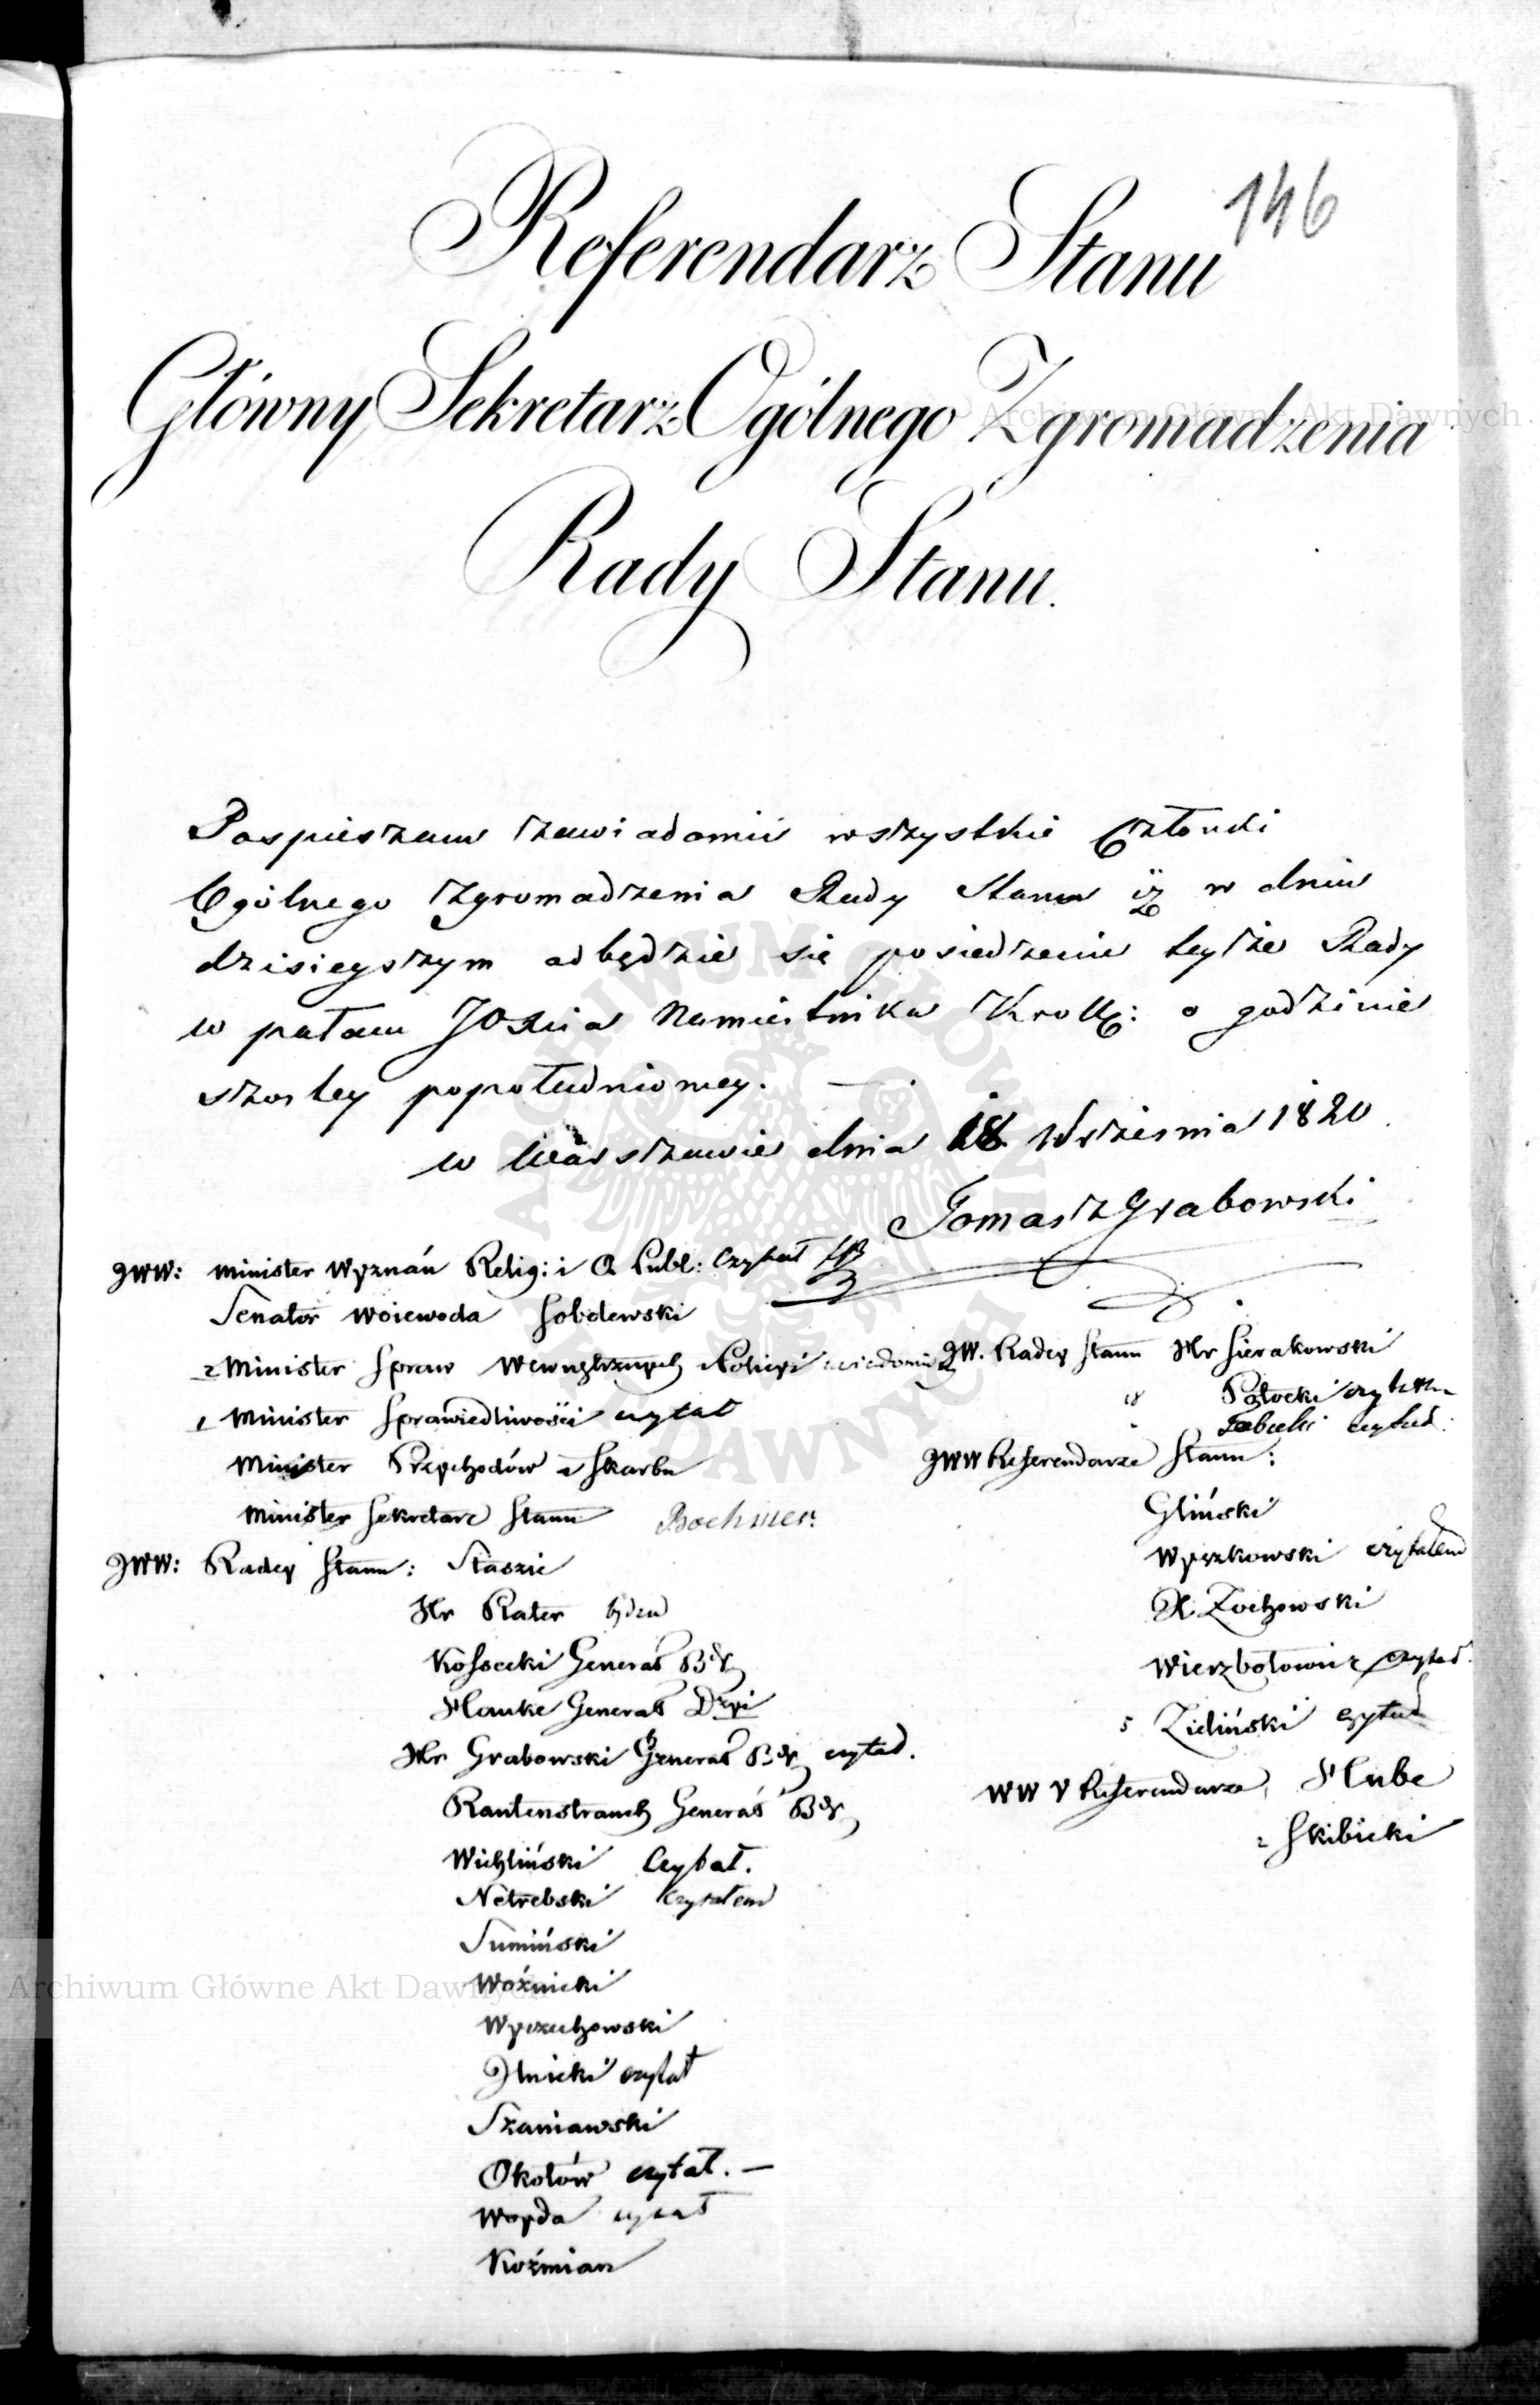 146
Referendarz Stanu
Główny Sekretarz Ogólnego Zgromadzenia
Rady Stanu.
Pospieszam zawiadomić wszystkie Członki
Ogólnego Zgromadzenia Rady Stanu iż w dniu
dzisieyszym odbędzie się posiedzenie teyże Rady
w pałacu JOXcia Namiestnika Królle: o godzinie
szostey popołudniowey. —
w Warszawie dnia 18 Września 1820.
Tomasz Grabowski
JWW: Minister Wyznań Relig: i O Publ: Czytał
Senator Woiewoda Sobolewski
2 Minister Spraw Wewnętrznych i Policyi
1 Minister Sprawiedliwości czytał
Minister Przychodów i Skarbu
Minister Sekretarz Stanu Boehmer.
JWW: Radcy Stanu: Staszic
Hr Plater
Kossecki Generał Bdy
Hauke Generał Dzyi
Hr Grabowski Generał Bdy czytał.
Rautenstrauch Generał Bdy
Wichliński Czytał.
Netrebski Czytałem
Sumiński
Woźnicki
Wyczechowski
Ilnicki czytał
Szaniawski
Okołów czytał. —
Woyda czytał
Koźmian
JW. Radcy Stanu Hr Sierakowski
Potocki czytałem
czytał:
JWW Referendarze Stanu:
Gliński
Wyczkowski czytałem
X. Zochowski
Wierzbołowicz czytał.
5 Zieliński czytał
WW V Referendarze, Hube
2 Skibicki
Archiwum Główne Akt Dawnych
Archiwum Główne Akt Dawnych
ARCHIWUM GŁÓWNE AKT DAWNYCH